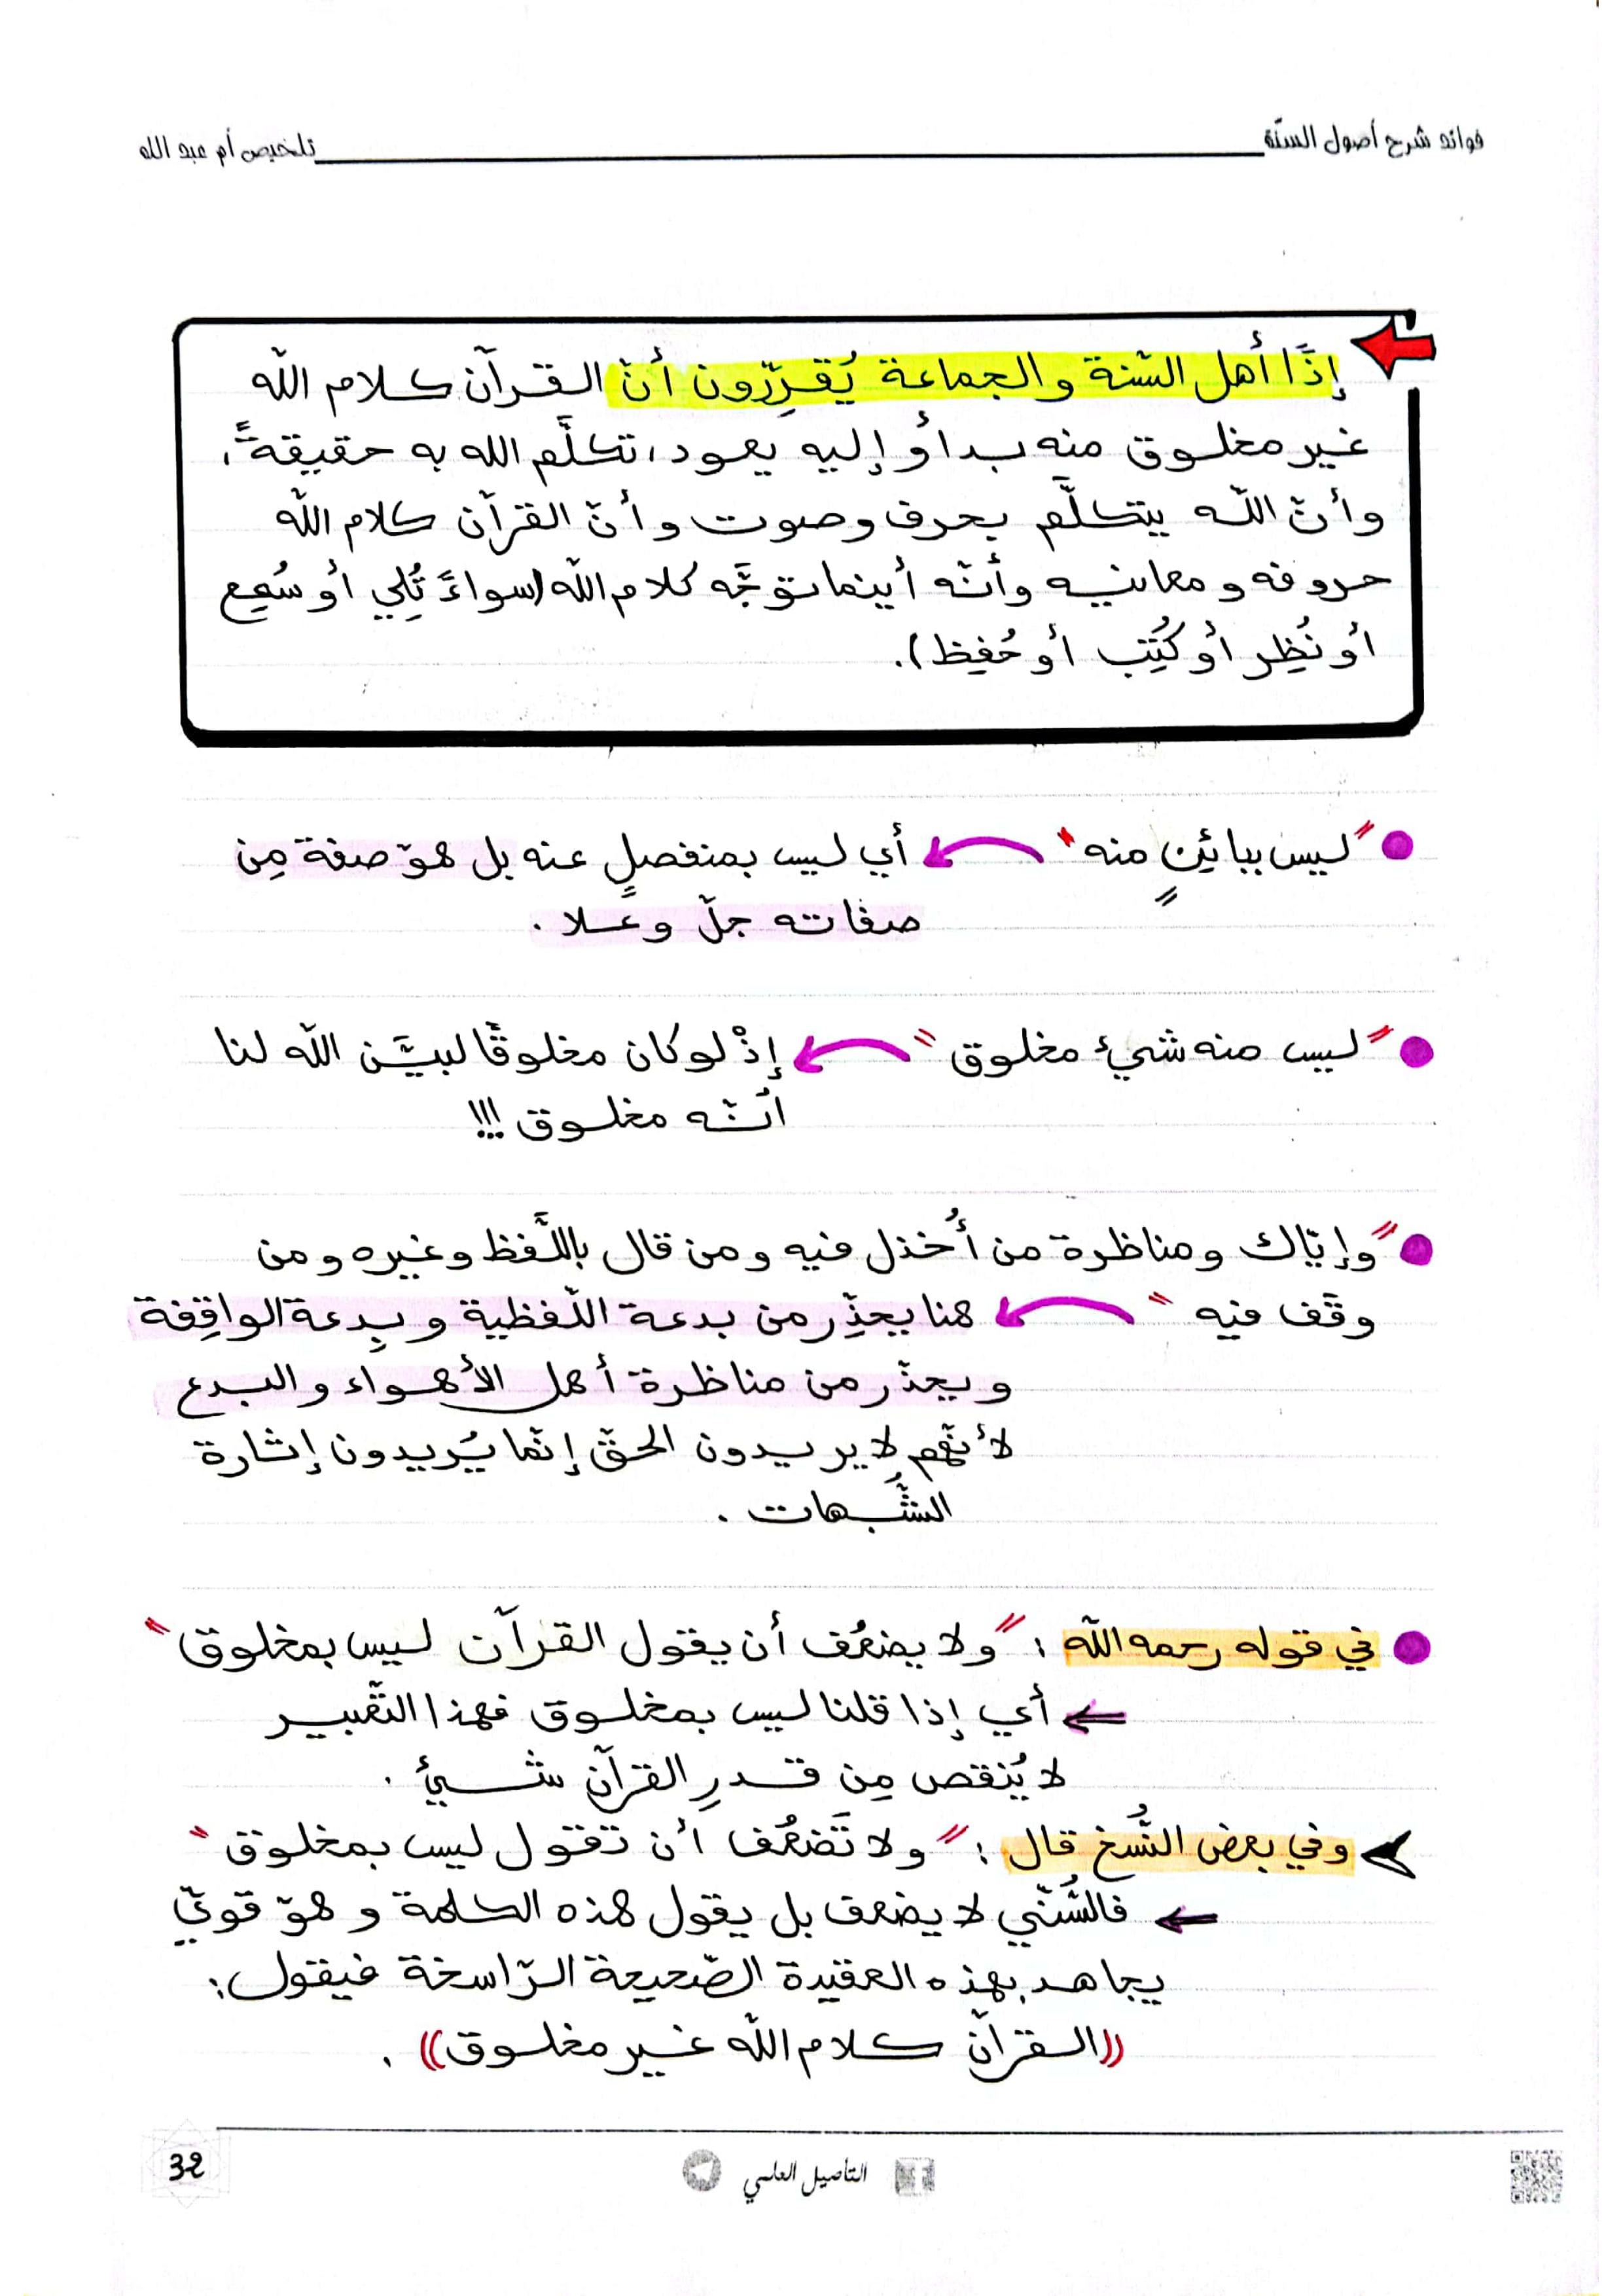 فوائد شرح أصول السنّة تلخيص أم عبد الله
إذًا أهل السّنة والجماعة يُقرِّرون أنّ القرآن كلام اللّه
غير مخلوق منه بدأ وإليه يعود، تكلَّم الله به حقيقةً،
وأنّ اللّه يتكلَّم بحرف وصوت وأنّ القرآن كلام اللّه
حروفه ومعانيه وأنّه أينما توجَّه كلام اللّه (سواءً تُلِي أو سُمِع
أو نُظِر أو كُتِب أو حُفِظ).
"ليس ببائنٍ منه" أي ليس بمنفصلٍ عنه بل هوّ صفة مِن
صفاته جلّ وعَلا .
"ليس منه شيءُ مخلوق" إذْ لو كان مخلوقًا لبيَّن اللّه لنا
أنّه مخلوق !!!
"وإيّاك ومناظرة من أُخذل فيه ومن قال باللَّفظ وغيره ومن
وقّف فيه" هنا يحذِّر من بدعة اللّفظية وبِدعة الواقِفة
ويحذّر من مناظرة أهل الأهواء والبدع
لأنّهم لا يريدون الحقّ إنّما يُريدون إثارة
الشُّبهات .
في قوله رحمه اللّه : "ولا يضعُف أن يقول القرآن ليس بمخلوق"
أي إذا قلنا ليس بمخلوق فهذا التّعبير
لا يُنقص مِن قدرِ القرآن شيئ .
وفي بعض النُّسخ قال : "ولا تَضعُف أن تقول ليس بمخلوق"
فالسُّنّي لا يضعف بل يقول هذه الكلمة وهوّ قويّ
يجاهد بهذه العقيدة الصّحيحة الرّاسخة فيقول:
((القرآن كلام اللّه غير مخلوق)) .
32
التأصيل العلمي